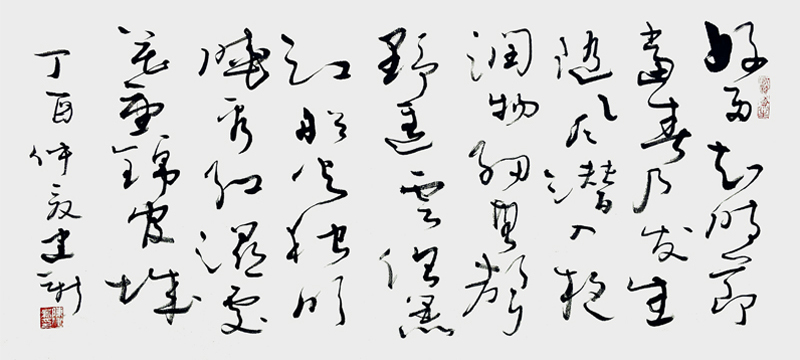 好雨知時節
當春乃发生
随风潜入夜
润物細無聲
野逕雲俱黑
江船火独明
曉看红濕處
花重錦官城
丁酉仲夏建新